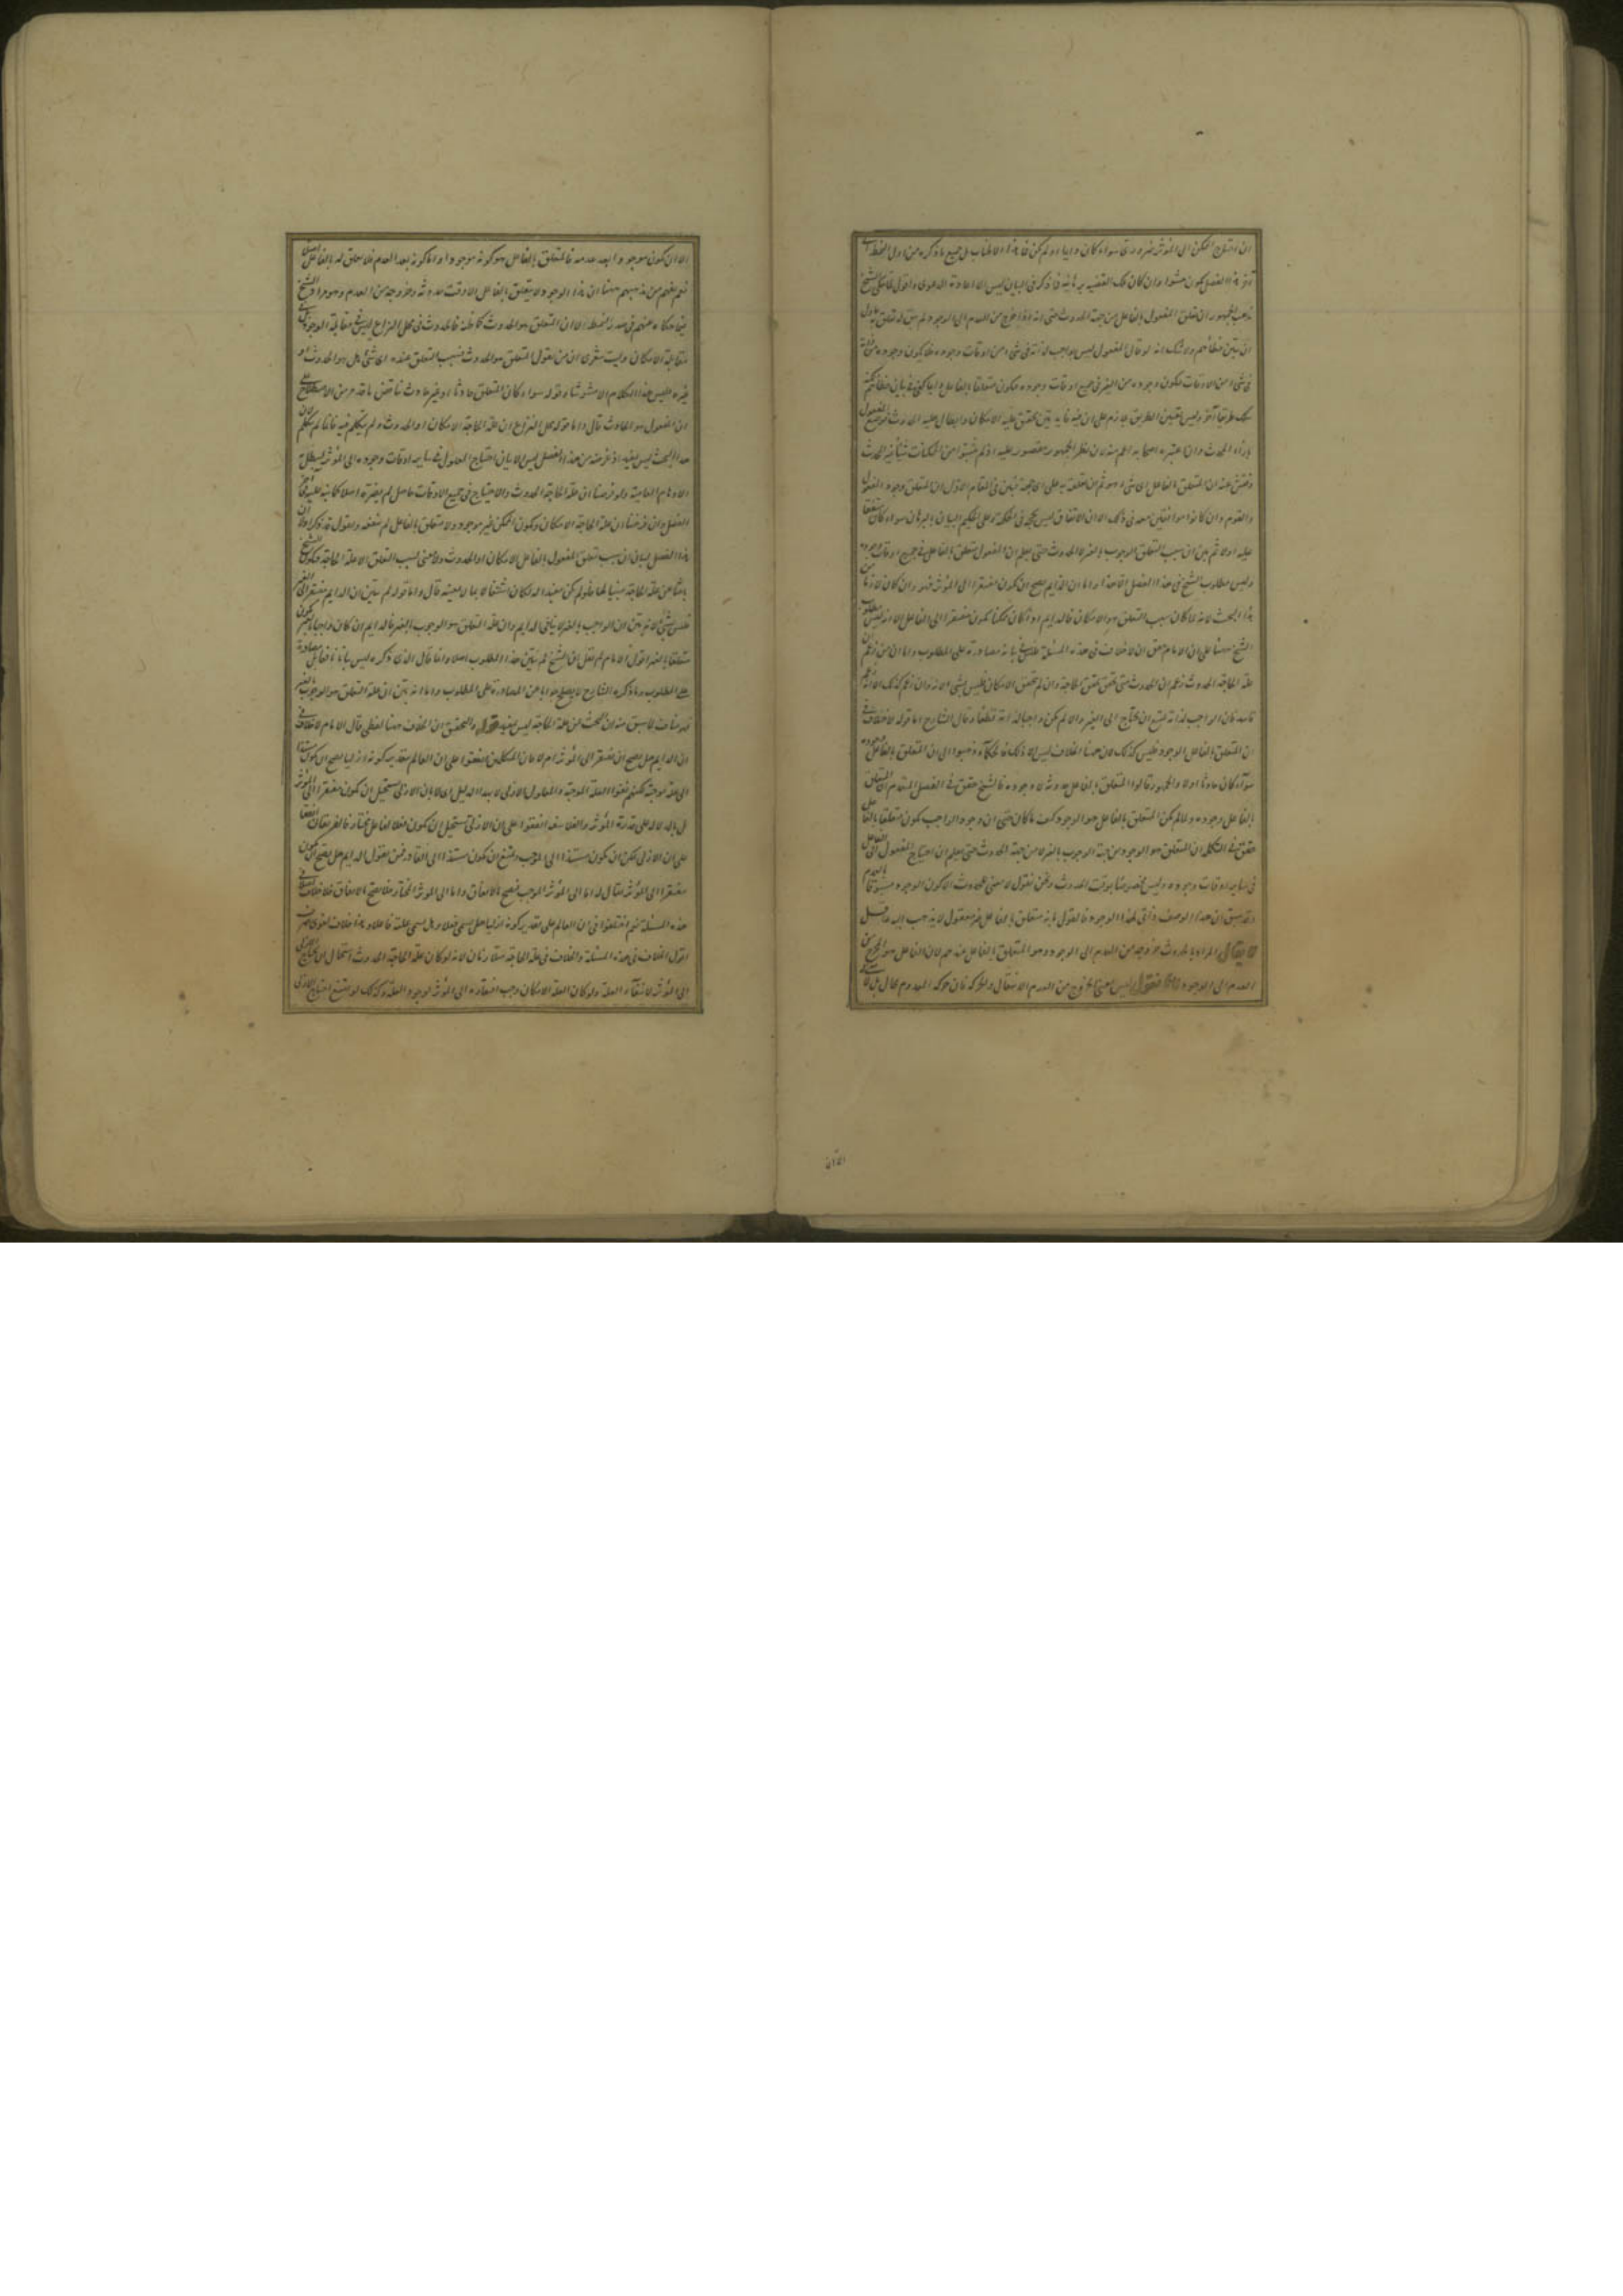 ان احتياج الممكن الى المؤثر ضرورى سواء كان دايما او لم يكن فا هذا الاطناب بل جميع ما ذكره من اول النمط الى
آخر هذا الفصل يكون حشوا وان كان تلك القضيه برهانيه فما ذكر فى البيان ليس الا اعادة الدعوى واقول لما حكى الشيخ
مذهب الجمهور ان تعلق المفعول بالفاعل من جهة الحدوث حتى انه اذا خرج من العدم الى الوجود لم يبق له تعلق
ان يبين خطائهم ولا شك انه لو قال المفعول ليس بواجب لذاته فى شىء من اوقات وجوده فلا يكون وجوده من ذاته
فى شىء من الاوقات فيكون وجوده من الغير فى جميع اوقات وجوده فيكون متعلقا بالفاعل دايما كفى فى بيان خطائهم لكنه
سلك طريقا آخر وليس تعيين الطريق بلازم على ان فيه فايه تبين تحقق علية الامكان وابطال علية الحدوث فوضع المفعول
بازاء المحدث وانما عبر به اصحابه اعم منه لان نظر الجمهور مقصور عليه اذ لم يثبتوا من الممكنات شيئا غير المحدث
وفتش عنه ان المتعلق بالفاعل اى شىء هو ثم ان تعلقه به على اى جهة فبين فى المقام الاول ان المتعلق وجود المفعول
والقوم وان كانوا موافقين معه فى ذلك الا ان الاتفاق ليس بحجة فى الحكمة وعلى الحكيم البيان بالبرهان سواء كان متفقا
عليه اولا ثم بين ان سبب التعلق الوجوب بالغير لا الحدوث حتى يعلم ان المفعول متعلق بالفاعل فى جميع اوقات وجوده
وليس مطلوب الشيخ فى هذا الفصل الا هذا واما ان الدايم يصح ان يكون مفتقرا الى المؤثر فهو وان كان لازما من
هذا البحث لانه لما كان سبب التعلق هو الامكان فالدايم اذا كان ممكنا يكون مفتقرا الى الفاعل الا انه ليس مطلوب
الشيخ هنا على ان الامام حقق ان لا خلاف فى هذه المسئلة فلا يبقى بانه مصادرة على المطلوب واما ان من زعم ان
علة الحاجة الحدوث زعم ان الحدوث متى تحقق تحقق الحاجة وان لم يتحقق الامكان فليس بشىء لانه وان زعم كذلك الا انه
فاسد فان الواجب لذاته يمتنع ان يحتاج الى الغير والا لم يكن واجبا لذاته قطعا وقال الشارح اما قوله لا خلاف فى
ان المتعلق بالفاعل الوجود فليس كذلك لان هنا الخلاف ليس الا ذلك فالحكماء ذهبوا الى ان المتعلق بالفاعل وجوده
سواء كان حادثا اولا والجمهور قالوا المتعلق بالفاعل حدوثه لا وجوده فالشيخ حقق فى الفصل المتقدم ان المتعلق
بالفاعل وجوده ولما لم يكن المتعلق بالفاعل هو الوجود كيف ما كان حتى ان وجود الواجب يكون متعلقا بالفاعل
حقق فى التكملة ان المتعلق هو الوجود من جهة الوجوب بالغير لا من جهة الحدوث حتى يعلم ان احتياج المفعول الى الفاعل
فى ساير اوقات وجوده وليس مخصوصا بوقت الحدوث ونحن نقول لا معنى للحدوث الا كون الوجود مسبوقا بالعدم
وقد سبق ان هذا الوصف ذاتى لهذا الوجود فالقول بانه متعلق بالفاعل غير معقول لا يذهب اليه عاقل
لا يقال المراد بالحدوث خروجه من العدم الى الوجود وهو المتعلق بالفاعل عندهم لان الفاعل هو المخرج من
العدم الى الوجود لانا نقول ليس معنى الخروج من العدم الانتقال والحركة فان حركة المعدوم محال بل لا معنى له
الا ان
الا ان يكون موجودا بعد عدمه فالمتعلق بالفاعل هو كونه موجودا واما كونه بعد العدم فلا تعلق له بالفاعل اصلا
نعم يفهم من مذهبهم هنا ان هذا الوجود لا يتعلق بالفاعل الا وقت حدوثه وخروجه من العدم وهو مراد الشيخ
فيما حكاه عنهم فى صدر النمط الا ان المتعلق هو الحدوث كما ظنه فالحدوث فى محل النزاع ليس فى مقابلة الوجود بل فى
مقابلة الامكان وليت شعرى ان من يقول المتعلق هو الحدوث فسبب التعلق عنده اى شىء هل هو الحدوث او
غيره فليس هذا الكلام الا مشوشا وقوله سواء كان المتعلق حادثا او غير حادث يناقض ما قدم من الاصطلاح على
ان المفعول هو الحادث قال واما قوله محل النزاع ان علة الحاجة الامكان او الحدوث ولم يتكلم فيه فانما لم يتكلم لان
هذا البحث ليس بمفيد اذ غرضه من هذا الفصل ليس الا بيان احتياج المعلول فى ساير اوقات وجوده الى المؤثر ليبطل
الاوهام العامية ولو فرضنا ان علة الحاجة الحدوث والاحتياج فى جميع الاوقات حاصل لم يضره اصلا
الفصل وان فرضنا ان علة الحاجة الامكان ويكون الممكن غير موجود ولا متعلق بالفاعل لم ينفعه واقول قد ذكر اولا ان
هذا الفصل لبيان ان سبب تعلق المفعول بالفاعل الامكان او الحدوث ولا معنى لسبب التعلق الا علة الحاجة فيكون الشيخ
باحثا عن علة الحاجة مبينا لها فلو لم يكن مفيدا له لكان اشتغالا بما لا يعنيه قال واما قوله لم يتبين ان الدايم مفتقر الى الغير
فليس بشىء لانه تبين ان الواجب بالغير لا ينافى الدايم وان علة التعلق هو الوجوب بالغير فالدايم ان كان واجبا بالغير يكون
متعلقا بالغير اقول الامام لم يقل ان الشيخ لم يتبين هذا المطلوب اصلا وانما قال الذى ذكره ليس بيانا فقال مصادرة
على المطلوب وما ذكره الشارح لا يصلح جوابا عن المصادرة على المطلوب واما انه تبين ان علة التعلق هو الوجوب بالغير
فهو مناف لما سبق منه ان البحث من علة الحاجة ليس بمفيد قوله والتحقيق ان الخلاف هنا لفظى قال الامام لا خلاف فى
ان الدايم هل يصح ان يفتقر الى المؤثر ام لا فان المتكلمين متفقوا على ان العالم بتقدير كونه ازليا يصح ان يكون مستندا
الى علة موجبة لكنهم نفوا العلة الموجبة والمعلول الازلى لا بهذا الدليل اى لا بان الازلى يستحيل ان يكون مفتقرا الى المؤثر
بل بالدلالة على قدرة المؤثر والفلاسفة اتفقوا على ان الازلى يستحيل ان يكون فعلا لفاعل مختار فالفريقان اتفقا
على ان الازلى يمكن ان يكون مستندا الى الموجب ويمتنع ان يكون مستندا الى القادر فمن يقول الدايم هل يصح ان يكون
مفتقرا الى المؤثر يقال له اما الى المؤثر الموجب فيصح بالاتفاق واما الى المؤثر المختار فلا يصح بالاتفاق فلا خلاف فى
هذه المسئلة نعم اختلفوا فى ان العالم على تقدير كونه ازليا هل يسمى فعلا وهل يسمى علته فاعلا وهذا خلاف لغوى صرف
اقول الخلاف فى هذه المسئلة والخلاف فى علة الحاجة متقارنان لانه لو كان علة الحاجة الحدوث استحال ان يحتاج الازلى
الى المؤثر لانتفاء العلة ولو كان العلة الامكان وجب افتقاره الى المؤثر لوجود العلة وكذلك لو امتنع احتياج الازلى